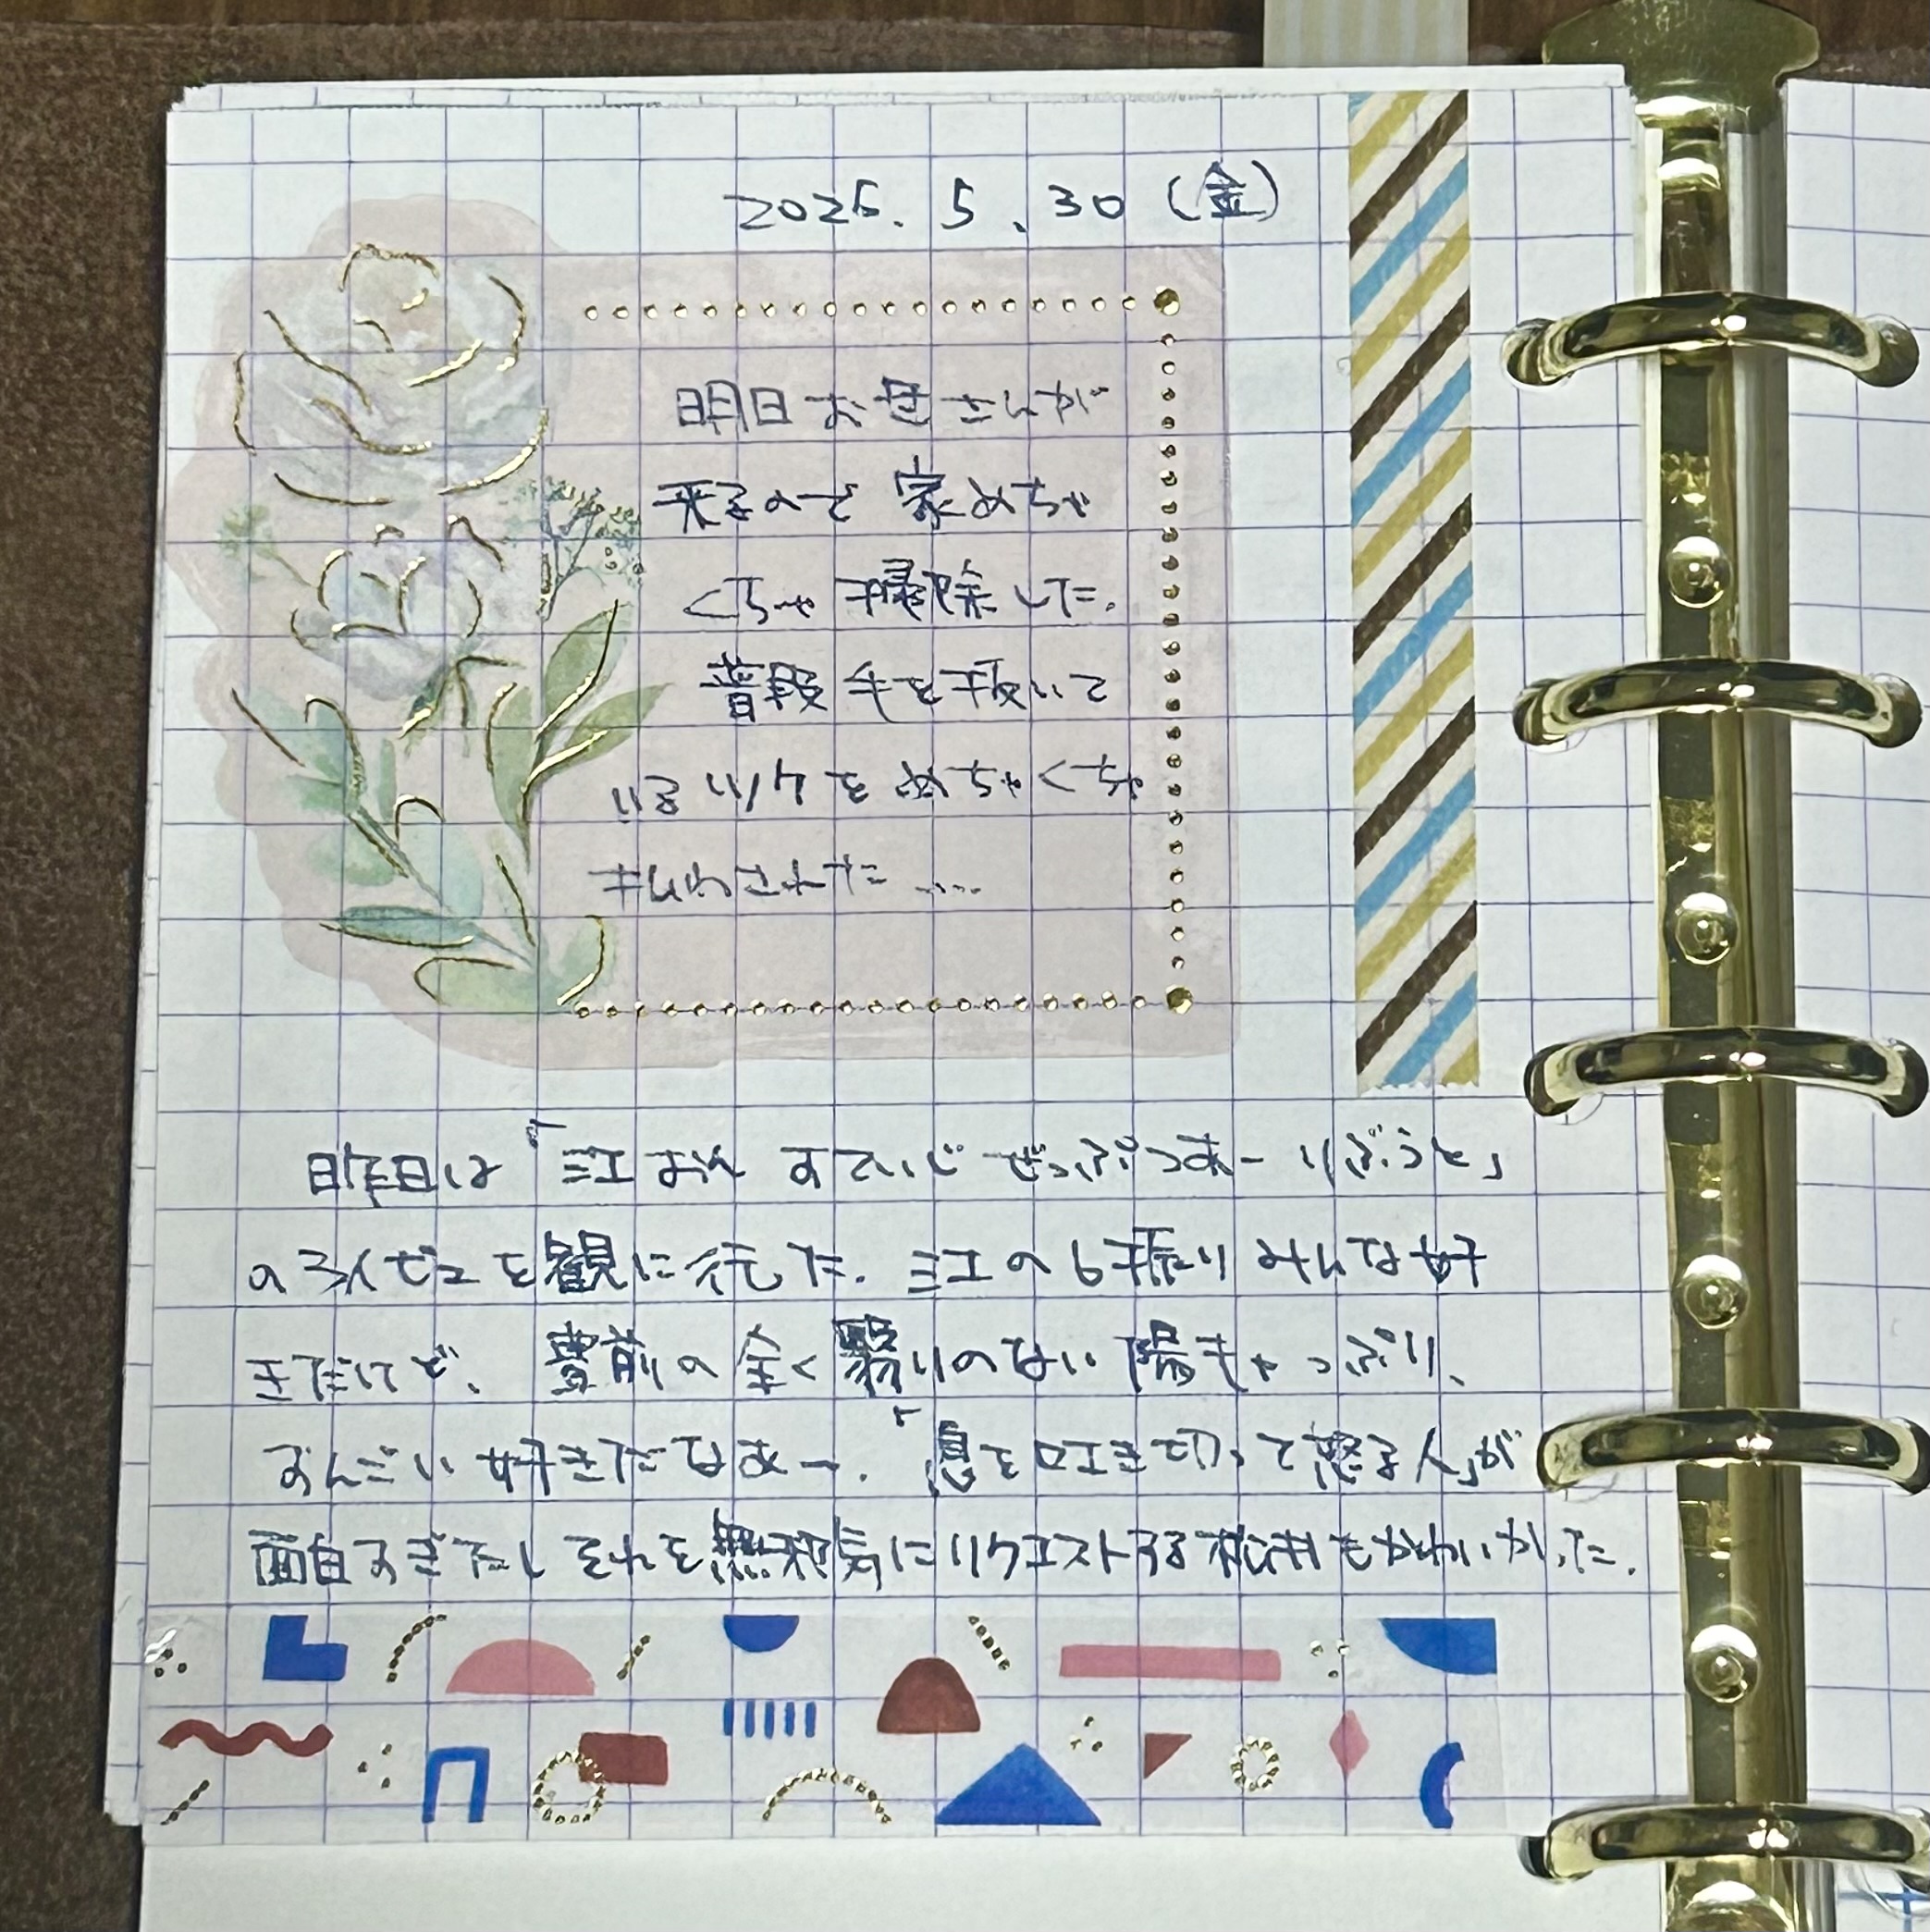 2025.5.30(金)
明日お母さんが
来るので家めちゃ
くちゃ掃除した.
普段手を抜いて
いるツケをめちゃくちゃ
払わされた....
昨日は「江おん すていじ ぜっぷつあー りぶうと」
のライビュを観に行った. 江の6振りみんな好
きだけど、豊前の全く翳りのない陽キャっぷり、
すんごい好きだなあー. 「息を吐き切って終る人」が
面白すぎたしそれを無邪気にリクエストする桑もかわいかった.